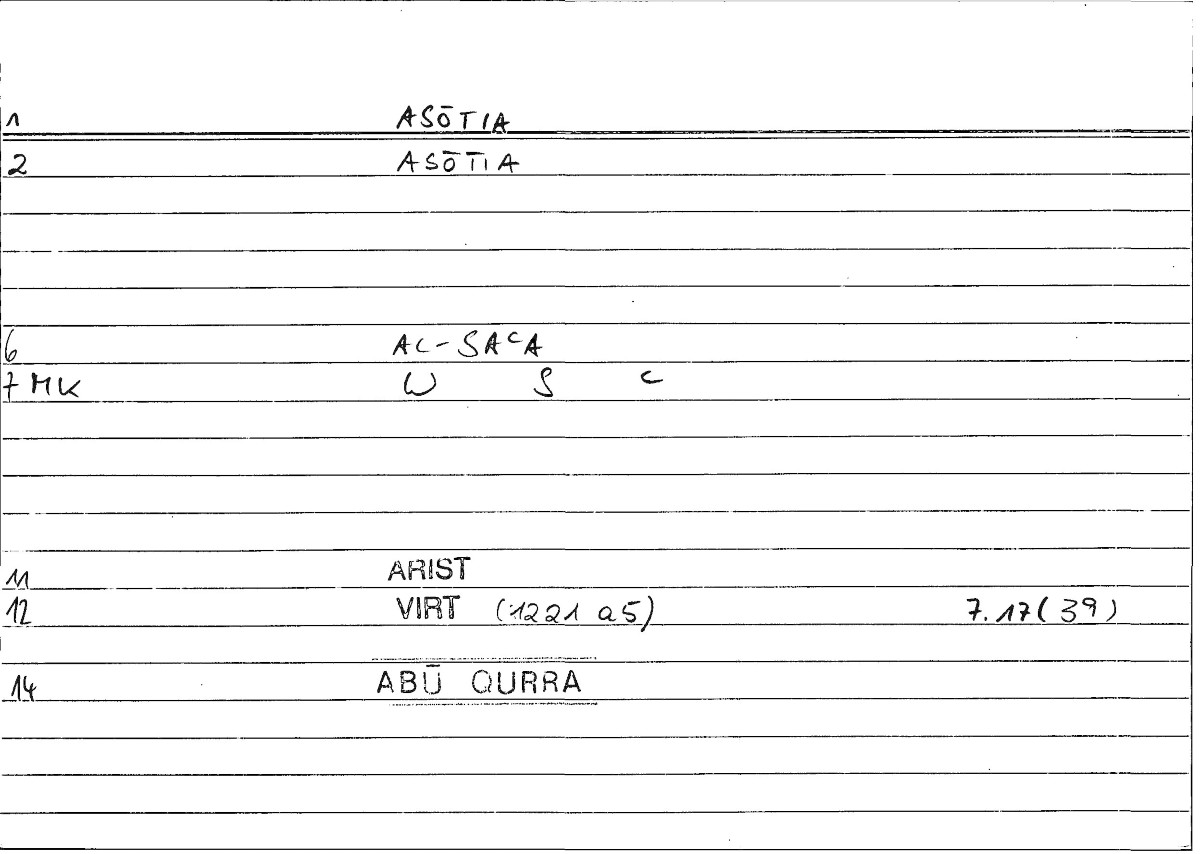 1 ASŌTIA
2 ASŌTIA
6 AL-SAᶜA
7 MK W S ᶜ
11 ARIST
12 VIRT (1221 a5) 7.17(39)
14 ABŪ QURRA